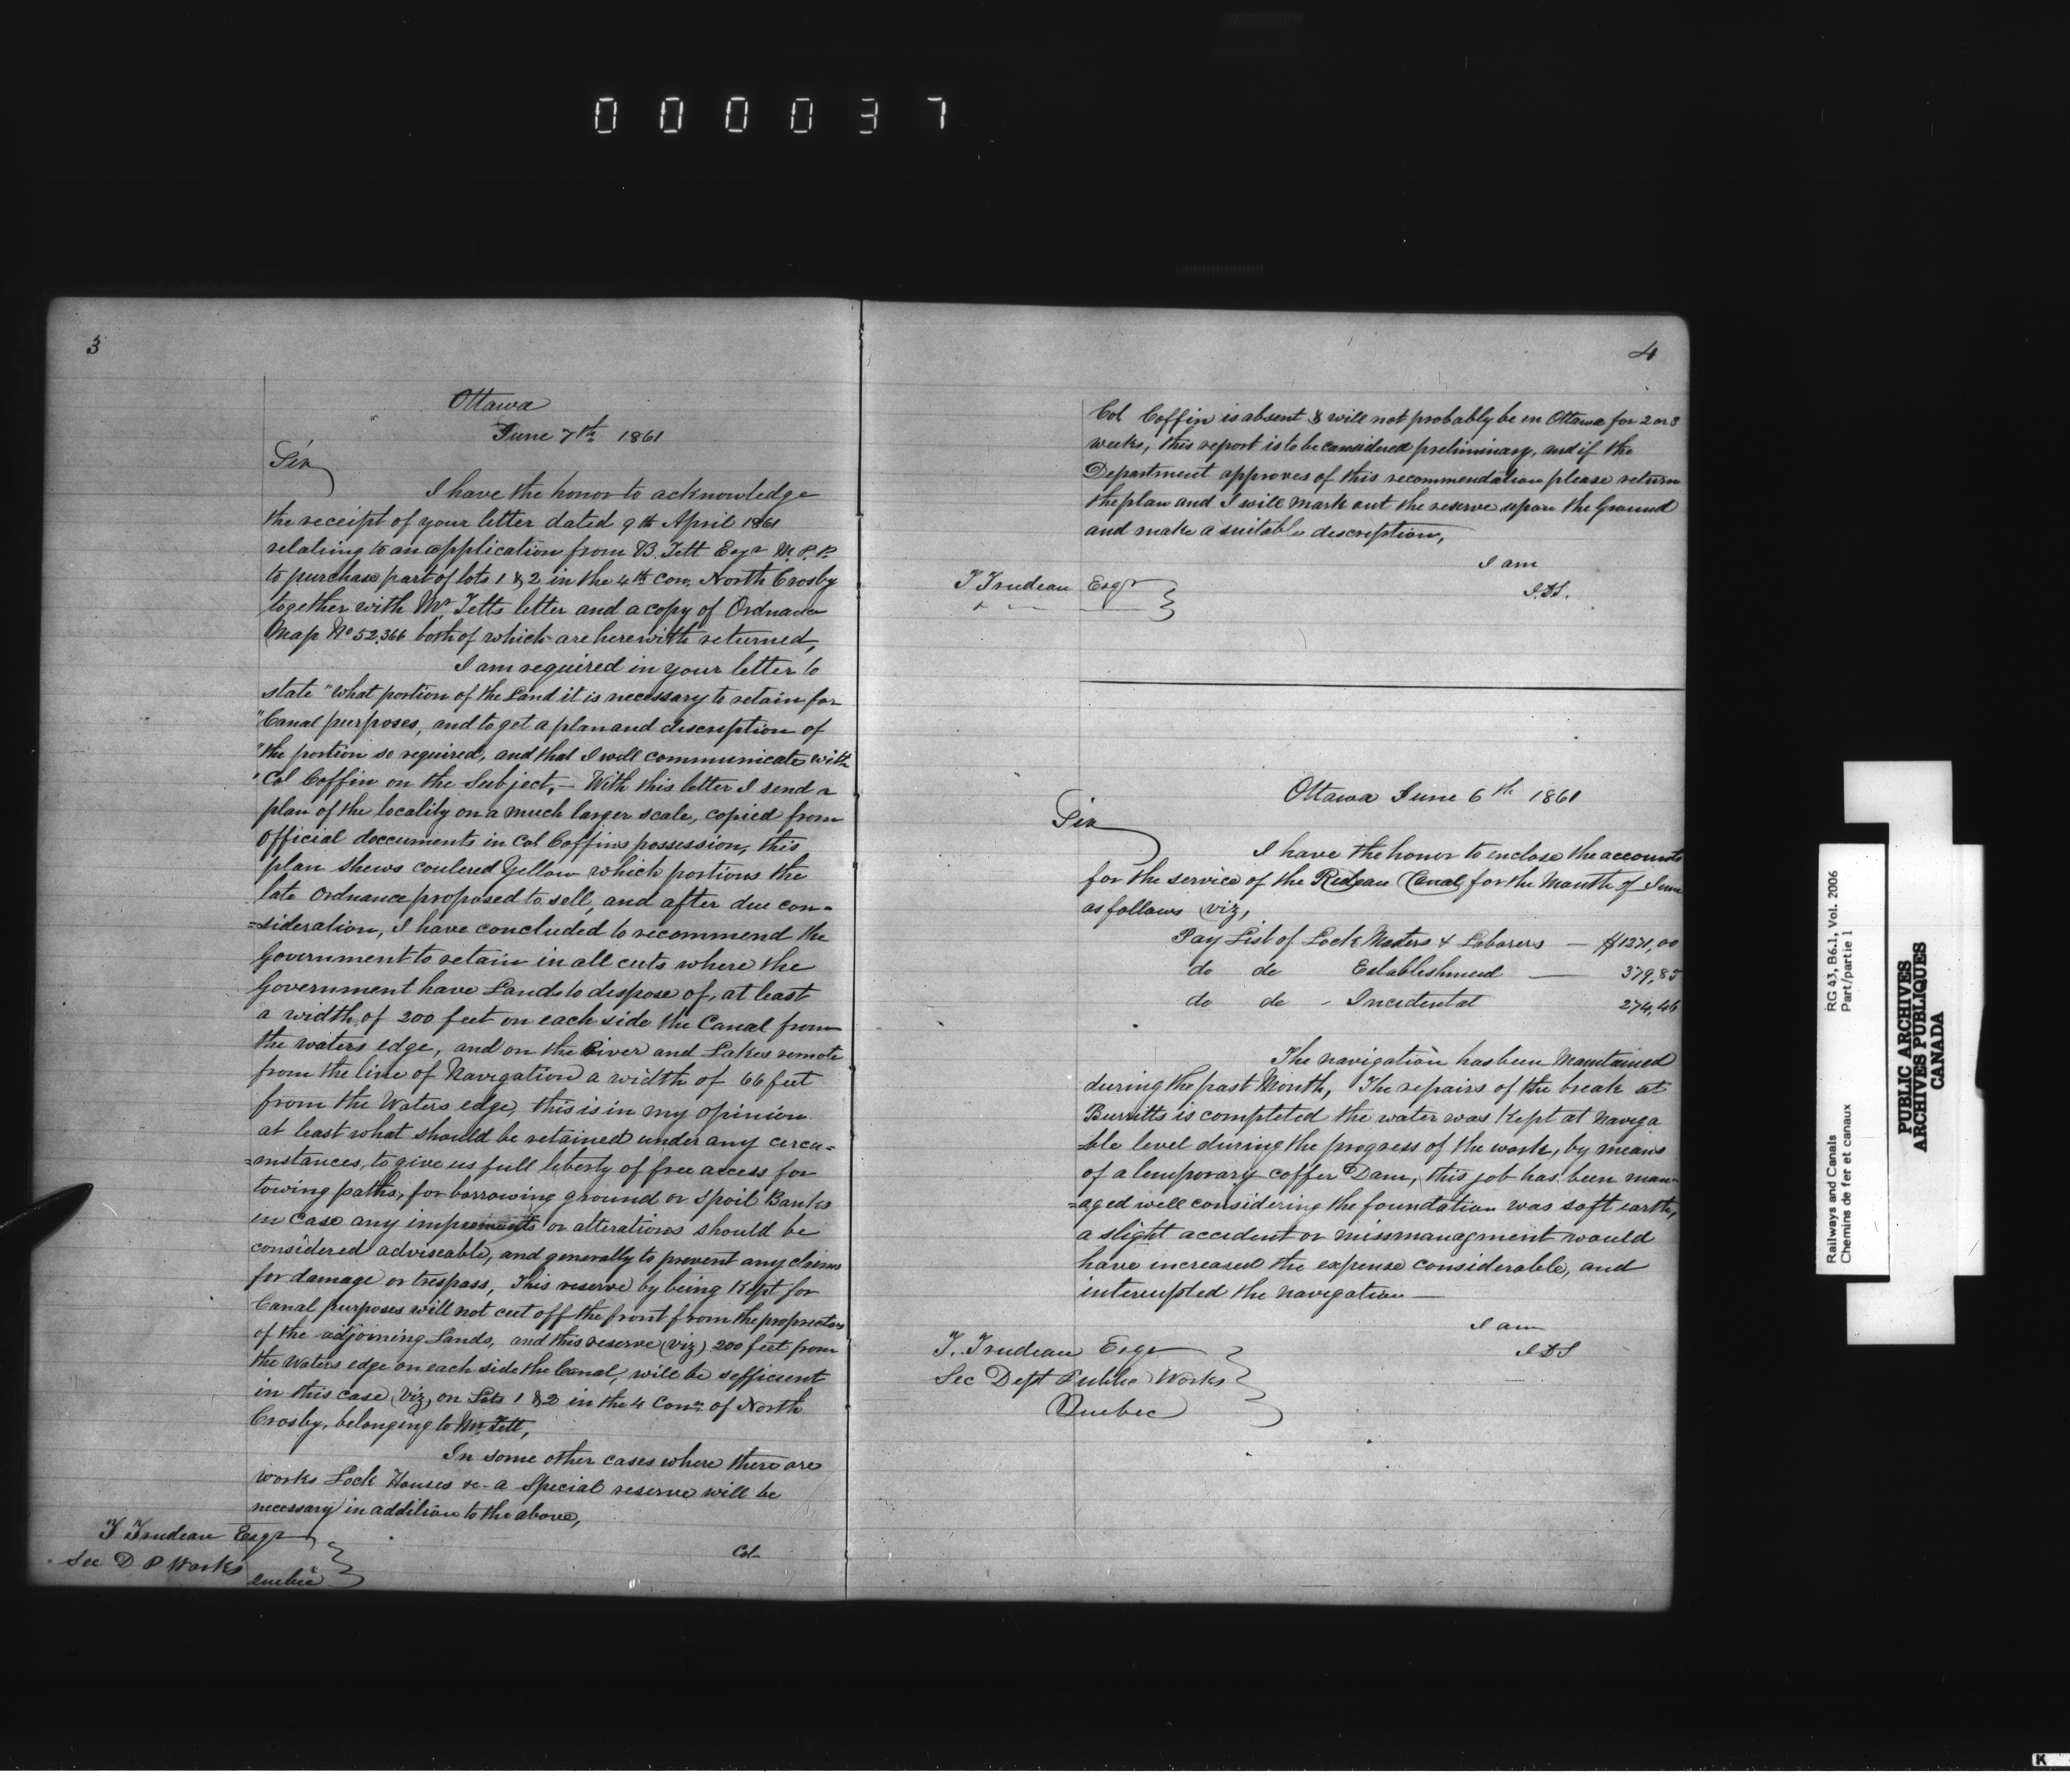 000037
3
Ottawa
June 7th 1861
Sir
I have the honor to acknowledge
the receipt of your letter dated 9th April 1861
relating to an application from B. Tett Esqr M.P.P.
to purchase part of lots 1 & 2 in the 4th Con. North Crosby
together with Mr Tetts letter and a copy of Ordnance
Map No 52,366 both of which are herewith returned,
I am required in your letter to
state "what portion of the Land it is necessary to retain for
"Canal purposes, and to get a plan and description of
"the portion so required, and that I will communicate with
"Col Coffin on the Subject, – With this letter I send a
plan of the locality on a much larger scale, copied from
Official doccuments in Col Coffins possession, this
plan shews coulered Yellow which portions the
late Ordnance proposed to sell, and after due con-
=sideration, I have concluded to recommend the
Government to retain in all cuts where the
Government have Lands to dispose of, at least
a width of 200 feet on each side the Canal from
the waters edge, and on the River and Lakes remote
from the line of Navigation a width of 66 feet
from the Waters edge, this is in my opinion
at least what should be retained under any circu=
=mstances, to give us full liberty of free access for
towing paths, for borrowing ground or Spoil Banks
in case any improments or alterations should be
considered adviseable, and generally to prevent any claims
for damage or trespass, This reserve by being Kept for
Canal purposes will not cut off the front from the proprietors
of the adjoining Lands, and this reserve (viz) 200 feet from
the Waters edge on each side the Canal, will be sefficient
in this case (viz, on Lots 1 & 2 in the 4 Conn of North
Crosby, belonging to Mr Tett,
In some other cases where there are
works Lock Houses &c a Special reserve will be
necessary in addition to the above,
T Trudeau Esqr
Sec D P Works
Quebec
Col
4
Col Coffin is absent & will not probably be in Ottawa for 2 or 3
weeks, this report is to be considered preliminary, and if the
Department approves of this recommendation please return
the plan and I will mark out the reserve upon the Ground
and make a suitable description,
I am
J.D.S.
T Trudeau Esqr
Ottawa June 6th 1861
Sir
I have the honor to enclose the accounts
for the service of the Rideau Canal for the Month of June
as follows (viz,
Pay List of Lock Masters & Laborers — $1271,00
do do Establishment — 379,85
do do - Incidental 274,46
The navigation has been Maintained
during the past Month, The repairs of the break at
Burritts is completed the water was Kept at Naviga
=ble level during the progress of the work, by means
of a temporary coffer Dam, this job has been man-
=aged well considering the foundation was soft earth,
a slight accident or missmanagment would
have increased the expense considerable, and
interrupted the navigation —
I am
J D S
T. Trudeau Esqr
Sec Dept Public Works
Quebec
Railways and Canals
Chemins de fer et canaux
RG 43, B6.1, Vol. 2006
Part/partie 1
PUBLIC ARCHIVES
ARCHIVES PUBLIQUES
CANADA
K